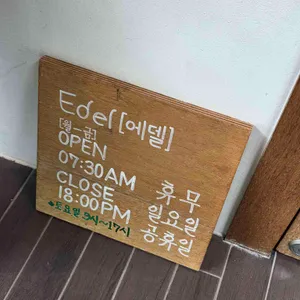 Edel[에델]
[월-금]
OPEN
07:30AM
CLOSE
18:00PM
휴무
일요일
공휴일
*토요일 9시~17시